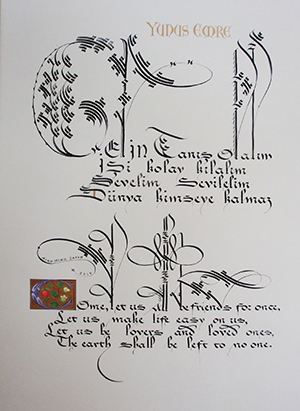 YUNUS EMRE
GElin Taniş Olalım
İşi kolay kılalım
Sevelim Sevilelim
Dünya kimseye kalmaz
Come, let us all be friends for once.
Let us make life easy on us,
Let us be lovers and loved ones,
The earth shall be left to no one.